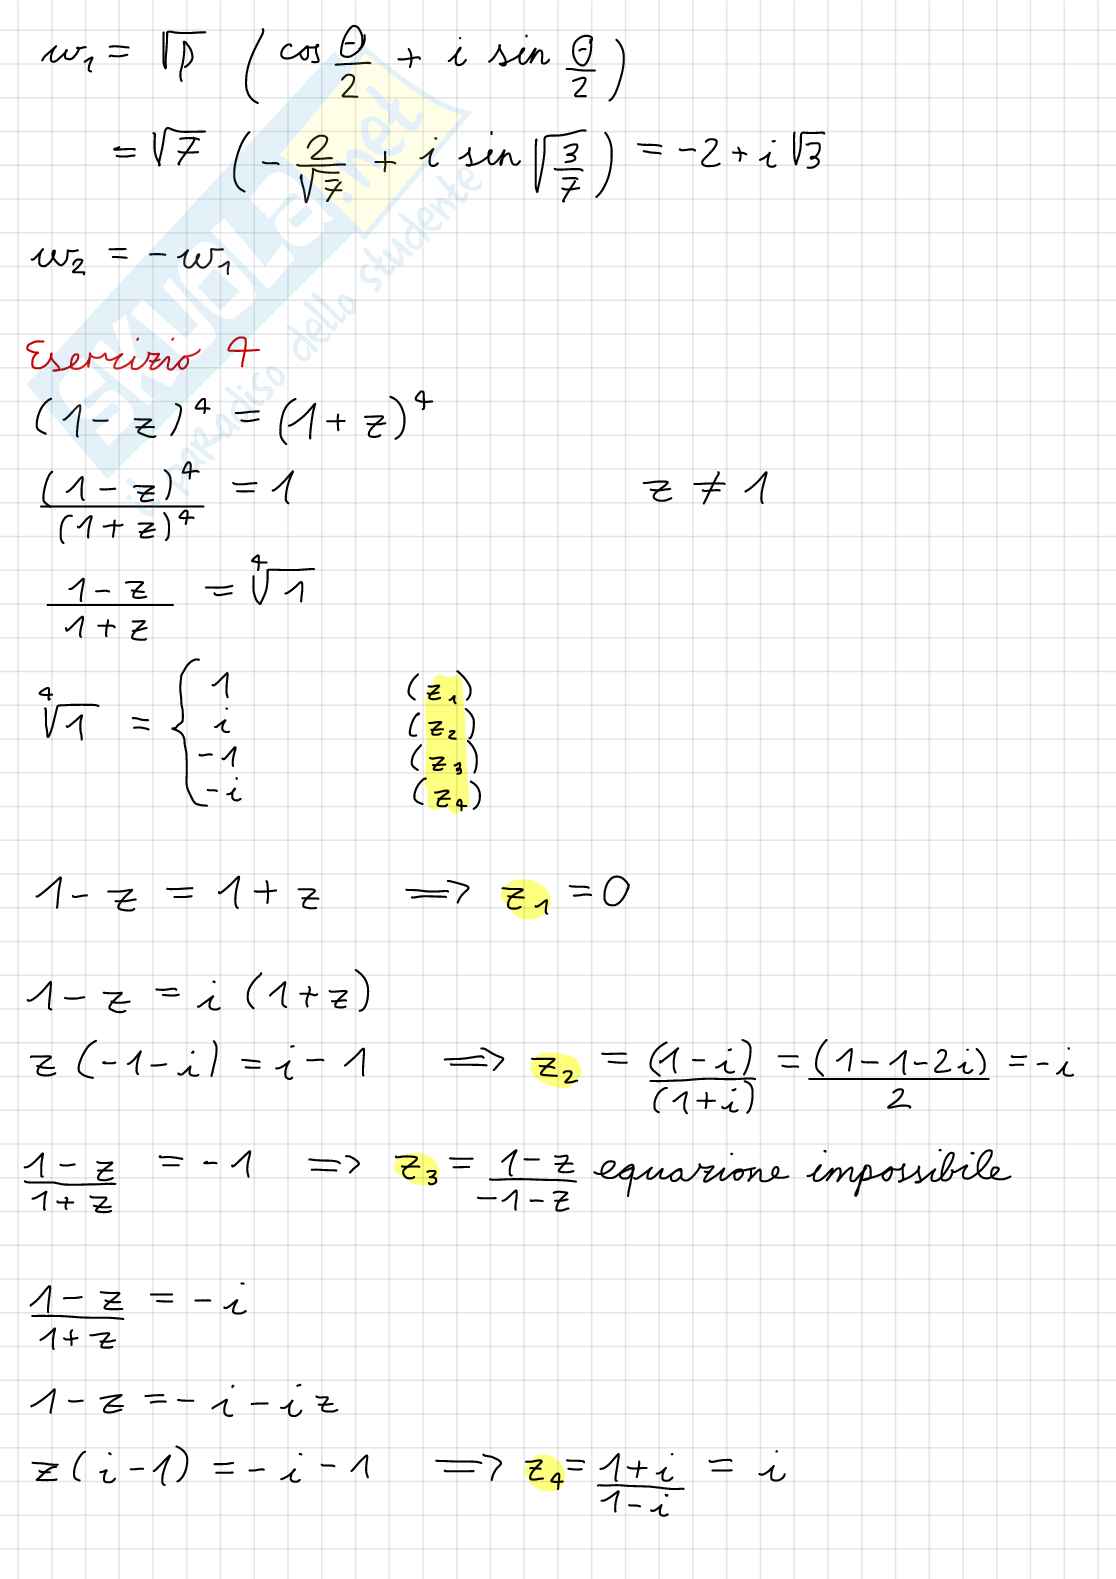 w₁ = √ρ (cos θ/2 + i sin θ/2)
= √7 (- 2/√7 + i sin √(3/7)) = -2 + i√3
w₂ = -w₁
Esercizio 4
(1 - z)⁴ = (1 + z)⁴
(1 - z)⁴/(1 + z)⁴ = 1 z ≠ 1
(1 - z)/(1 + z) = ⁴√1
⁴√1 = { 1 (z₁)
i (z₂)
-1 (z₃)
-i (z₄)
1 - z = 1 + z ⟹ z₁ = 0
1 - z = i (1 + z)
z (-1 - i) = i - 1 ⟹ z₂ = (1 - i)/(1 + i) = (1 - 1 - 2i)/2 = -i
(1 - z)/(1 + z) = -1 ⟹ z₃ = (1 - z)/(-1 - z) equazione impossibile
(1 - z)/(1 + z) = -i
1 - z = - i - i z
z (i - 1) = - i - 1 ⟹ z₄ = (1 + i)/(1 - i) = i
SKUOLA.net
il paradiso dello studente